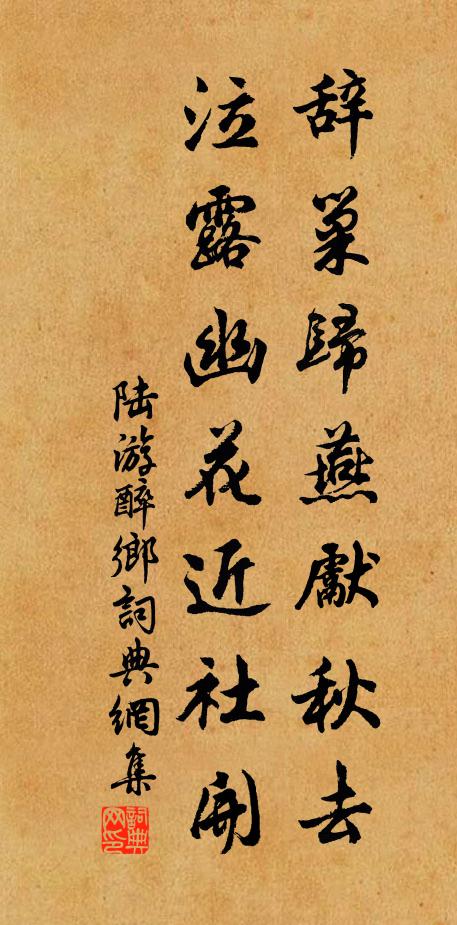 辞巢歸燕獻秋去
泣露幽花近社開
陸游醉鄉詞典網集
詞典网印